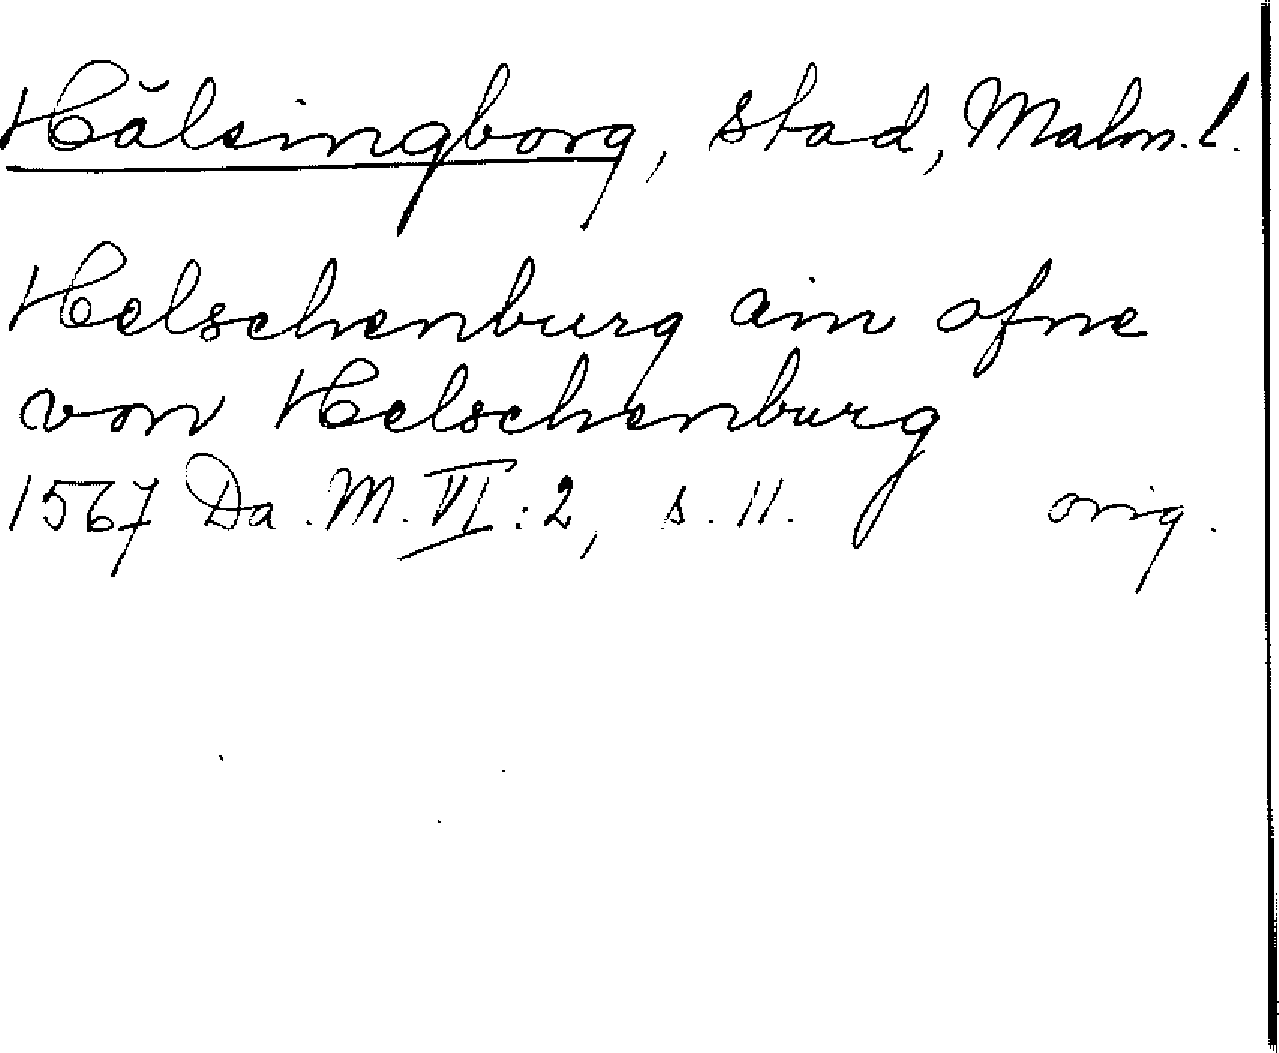 Hälsingborg, stad, Malm. l.
Helschenburg ain ofne
von Helschenburg
1567 Da. M. VI:2, s. 11. orig.